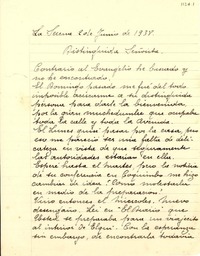 La Serena 2 de Junio de 1938.
Distinguida Señorita:
Contrario al Evangelio he buscado y
no he encontrado.
El Domingo pasado me fué del todo
imposible acercarme a su distinguida
persona para darle la bienvenida,
por la gran muchedumbre que ocupaba
toda la calle y toda la Avenida.
El Lunes quise pasar por la casa, pero
me pareció ser una falta de deli-
cadeza en vista de que seguramente
las autoridades estarían en ella.
Esperé hasta el martes, pero la noticia
de su conferencia en Coquimbo me hizo
cambiar de idea: "Como molestarla
en medio de la preparación".
Vino entonces el miércoles. Nuevo
desengaño. Leí en "El Diario" que
Usted se preparaba para un viaje
al interior de Elqui. Con la esperanza
sin embargo, de encontrarla todavía